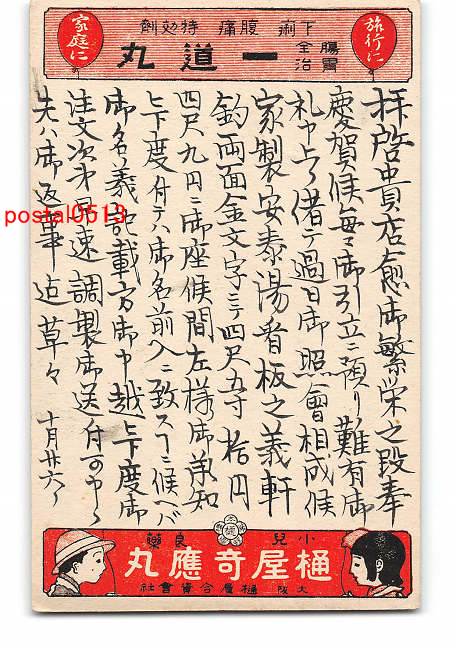 旅行に
家庭に
下痢 腹痛 特効剤
腸胃全治
一道丸
拝啓貴店愈御繁栄之段奉
慶賀候毎々御引立ニ預リ難有御
礼申上候偖テ過日御照會相成候
家製安泰湯看板之義軒
釣両面金文字ニテ四尺五寸拾円
四尺九円ニ御座候間左様御承知
上下度付テハ御名前入ニ致スコニ候ヘバ
御名義記載方御申越上下度御
注文次第早速調製御送付可申候
先ハ御返事迄草々 十月廿六日
postal0513
小兒良藥
樋屋奇應丸
大阪 樋屋合資會社